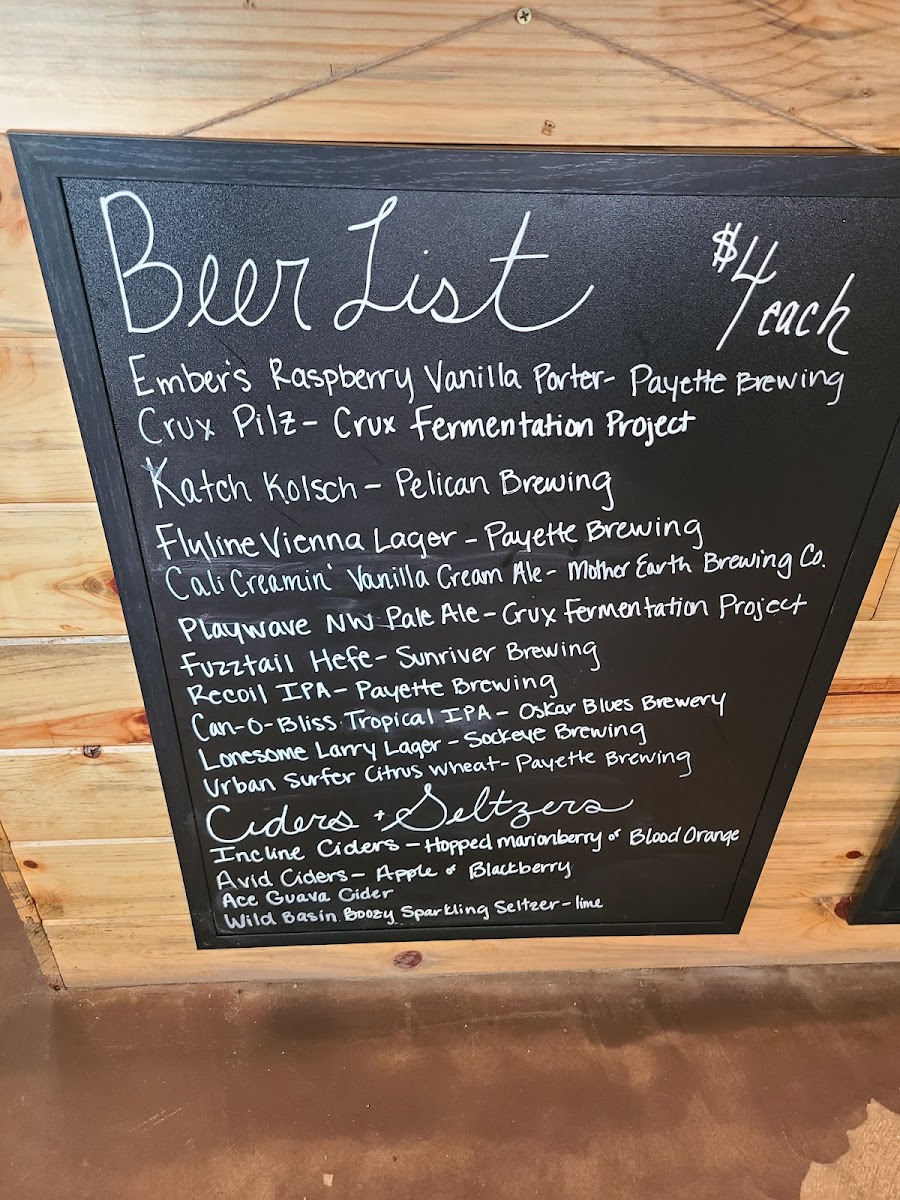 Beer List
$4 each
Ember's Raspberry Vanilla Porter- Payette Brewing
Crux Pilz - Crux Fermentation Project
Katch Kolsch - Pelican Brewing
Flyline Vienna Lager - Payette Brewing
Cali Creamin' Vanilla Cream Ale - Mother Earth Brewing Co.
Playwave NW Pale Ale - Crux Fermentation Project
Fuzztail Hefe - Sunriver Brewing
Recoil IPA - Payette Brewing
Can-O-Bliss Tropical IPA - Oskar Blues Brewery
Lonesome Larry Lager - Sockeye Brewing
Urban Surfer Citrus Wheat - Payette Brewing
Ciders + Seltzers
Incline Ciders - Hopped Marionberry or Blood Orange
Avid Ciders - Apple or Blackberry
Ace Guava Cider
Wild Basin Boozy Sparkling Seltzer - lime